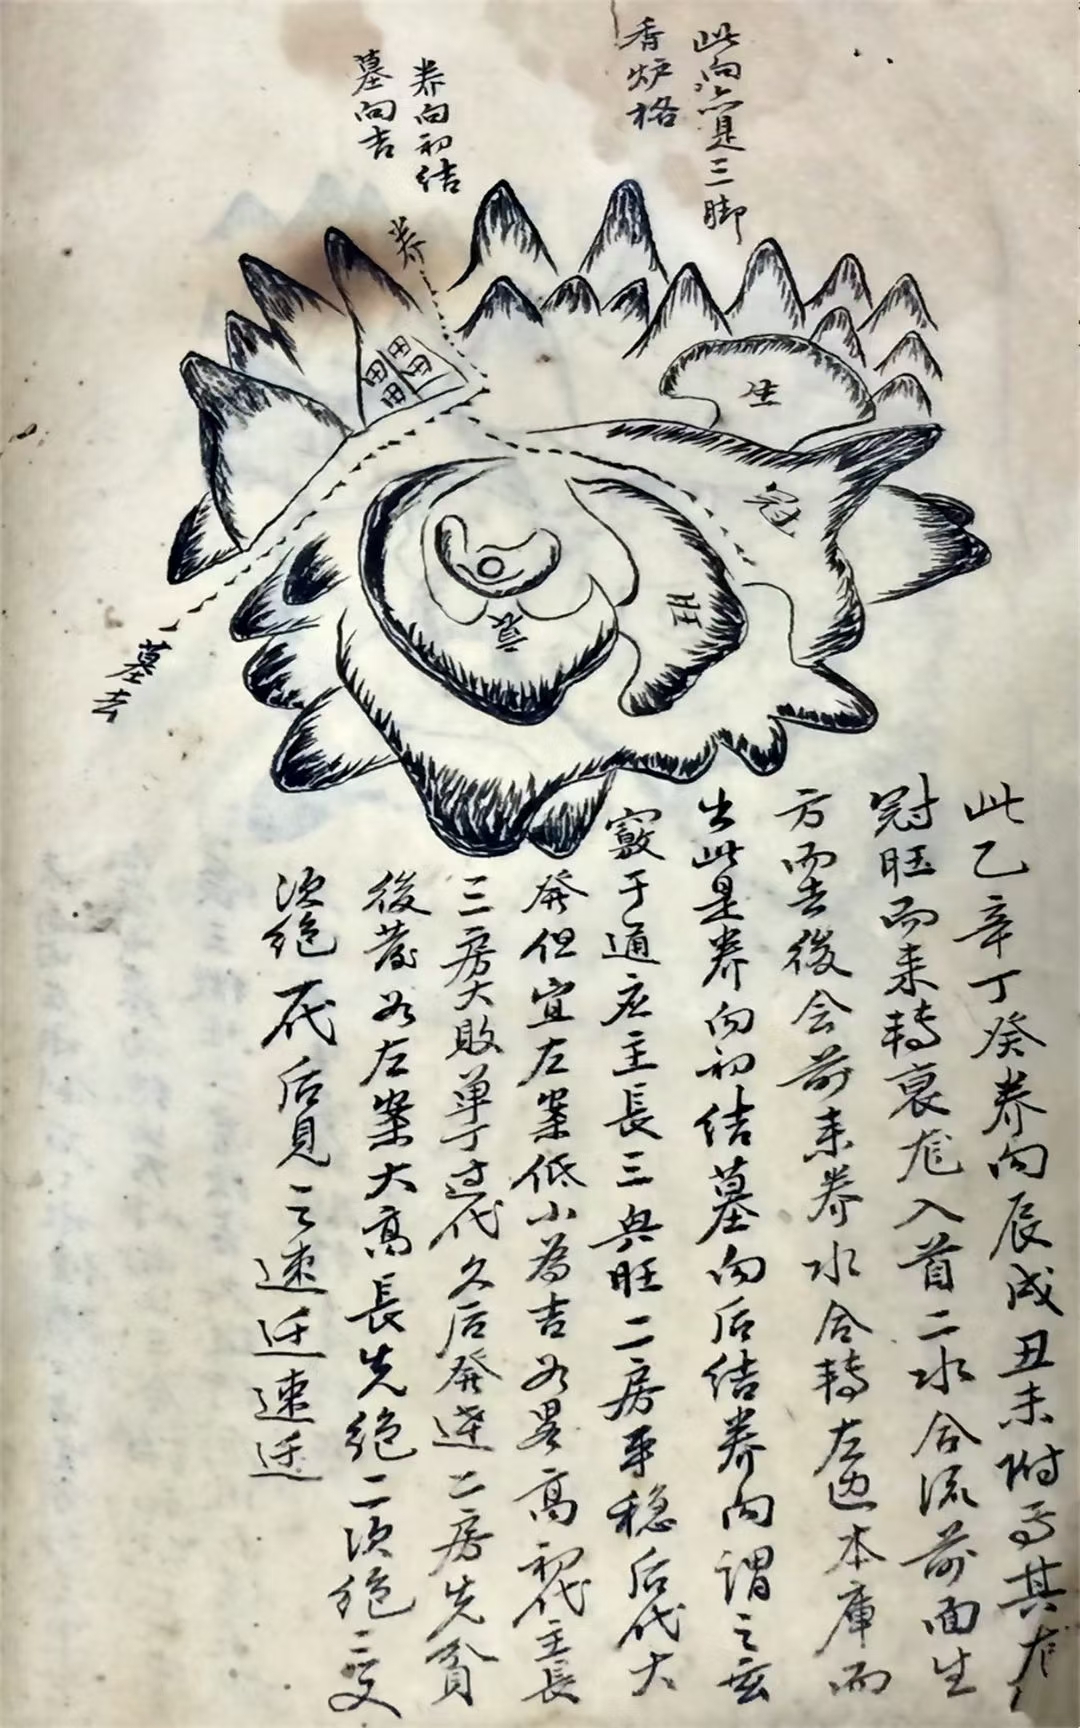 此向亦是三脚
香炉格
养向初结
墓向吉
养
田田田田
生
冠
旺
衰
墓去
此乙辛丁癸养向辰戌丑未附焉其龙
冠旺而来转衰龙入首二水合流前面生
方而去後会前来养水合转左边本库而
出此是养向初结墓向后结养向谓之玄
窍于通应主長三兴旺二房平稳后代大
癸但宜左案低小為吉若是高初代主長
三房大败单丁过代久后癸达二房先貧
後若左案大高長先绝二次绝三又
次绝一代后見之速迁速迁